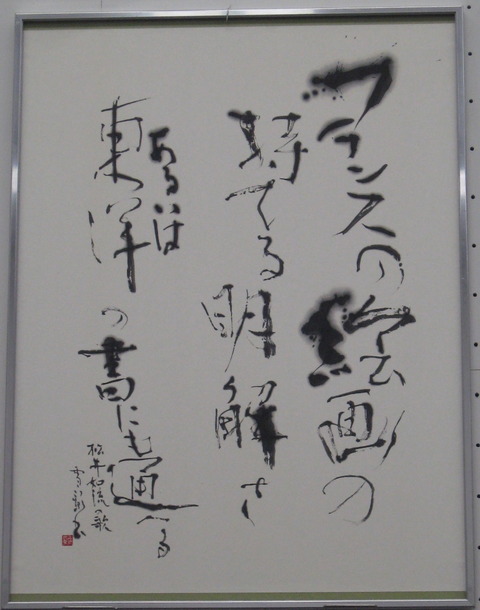 フランスの絵画の
持てる明解さ
あるいは
東洋の書にも通へる
松井如流の歌